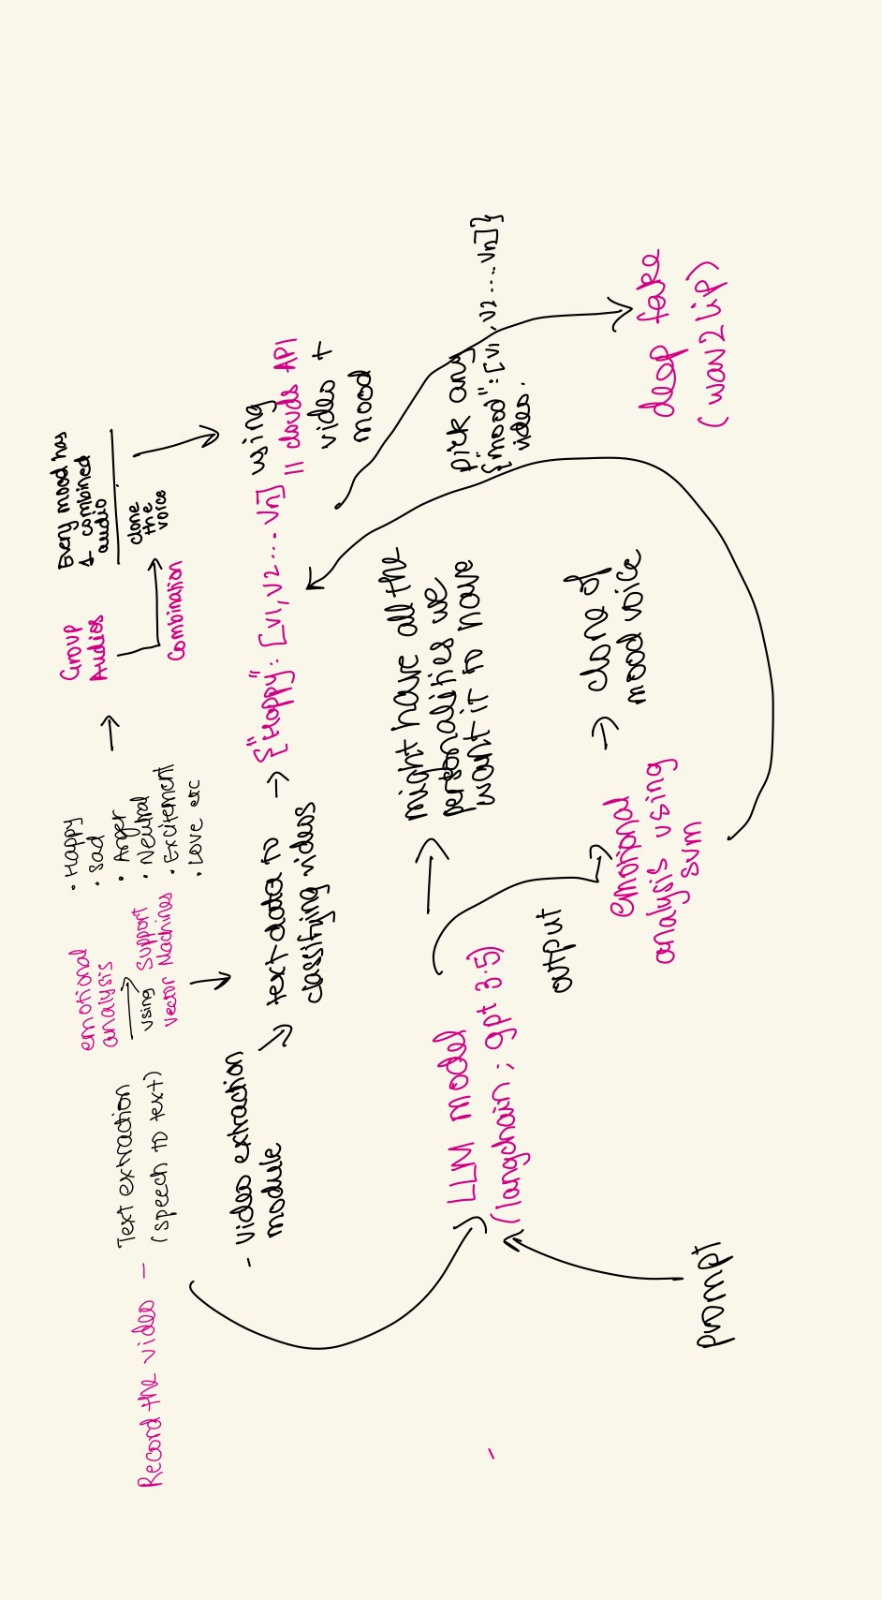 Record the video -
Text extraction
(speech to text)
emotional
analysis
using Support
Vector Machines
• Happy
• Sad
• Anger
• Neutral
• Excitement
• Love etc
Group
Audios
Combination
Every mood has
1 combined
audio
clone
the
voice
- video extraction
module
text data to
classifying videos
{"Happy": [v1, v2 ... vn]
using
11 clouds API
video +
mood
LLM model
(langchain ; gpt 3.5)
might have all the
personalities we
want it to have
pick any
{"mood": [v1, v2 ... vn]}
video.
output
emotional
analysis using
svm
clone of
mood voice
deep fake
(wav2lip)
prompt